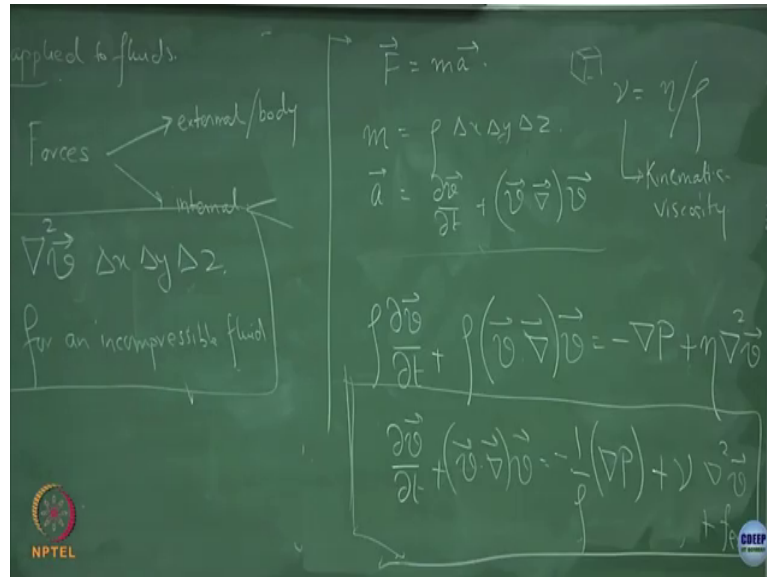 applied to fluids.
Forces
external/body
internal
∇²v⃗ Δx Δy Δz.
for an incompressible fluid
F⃗ = ma⃗.
m = ρ Δx Δy Δz.
a⃗ = ∂v⃗/∂t + (v⃗.∇⃗)v⃗
ν = η/ρ
Kinematic-
viscosity
ρ ∂v⃗/∂t + ρ(v⃗.∇⃗)v⃗ = -∇P + η∇²v⃗
∂v⃗/∂t + (v⃗.∇⃗)v⃗ = -1/ρ (∇P) + ν ∇²v⃗
NPTEL
CDEEP